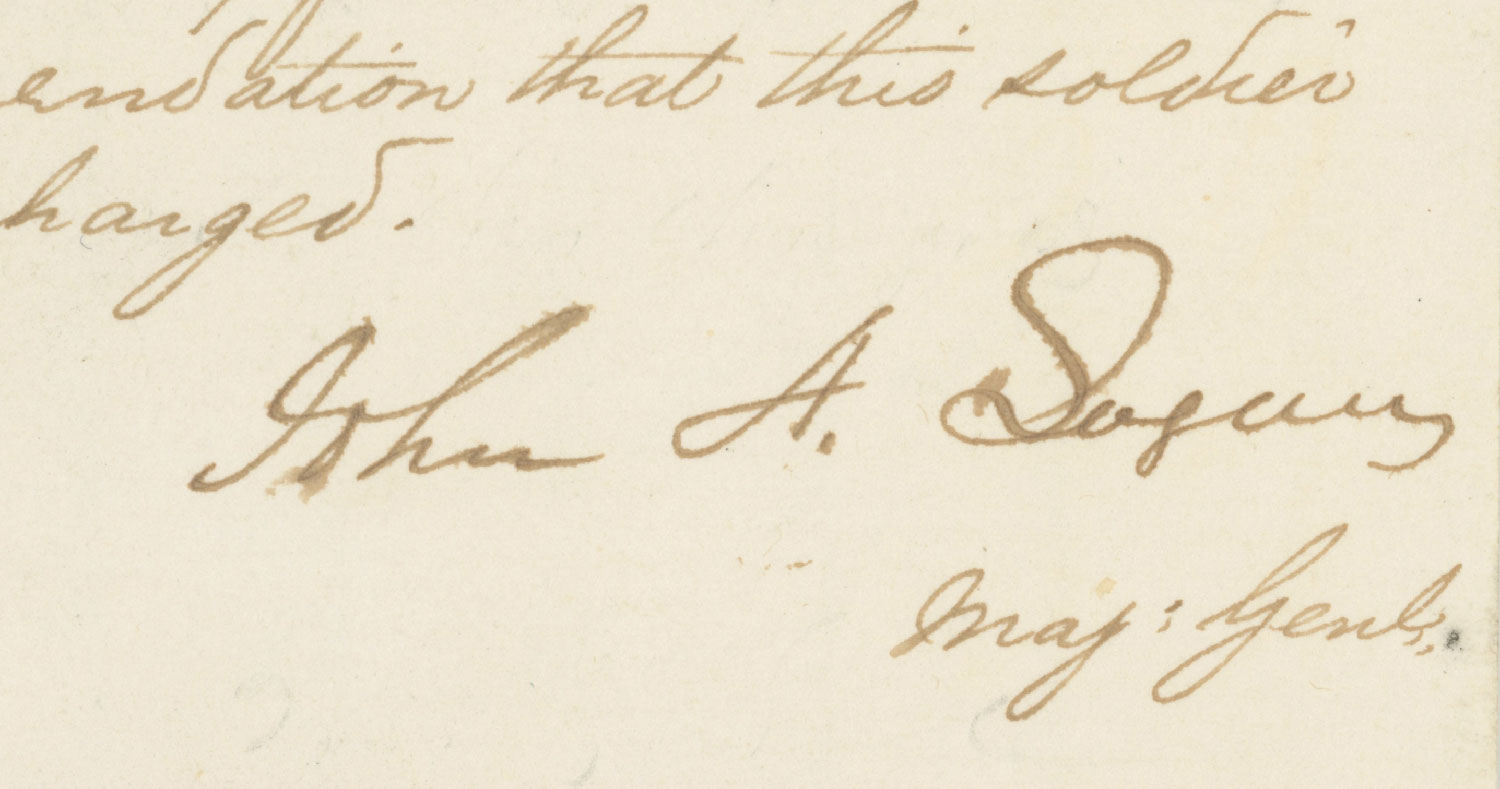 endation that this soldier
harged.
John A. Logan
Maj: Genl.